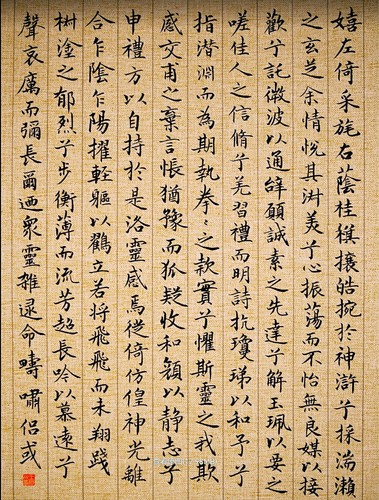 嬉左倚采旄右蔭桂旗攘皓捥於神滸兮採湍瀨
之玄芝余情悅其淑美兮心振蕩而不怡無良媒以接
歡兮託微波以通辭願誠素之先達兮解玉珮以要之
嗟佳人之信脩兮羌習禮而明詩抗瓊珶以和予兮
指潛淵而為期執拳〻之款實兮懼斯靈之我欺
感交甫之棄言悵猶豫而狐疑收和顏以静志兮
申禮方以自持於是洛靈感焉徙倚仿偟神光離
合乍陰乍陽擢輕軀以鶴立若將飛飛而未翔踐
椒塗之郁烈兮步衡薄而流芳超長吟以慕遠兮
聲哀厲而彌長爾迺眾靈雜遝命疇嘯侣或